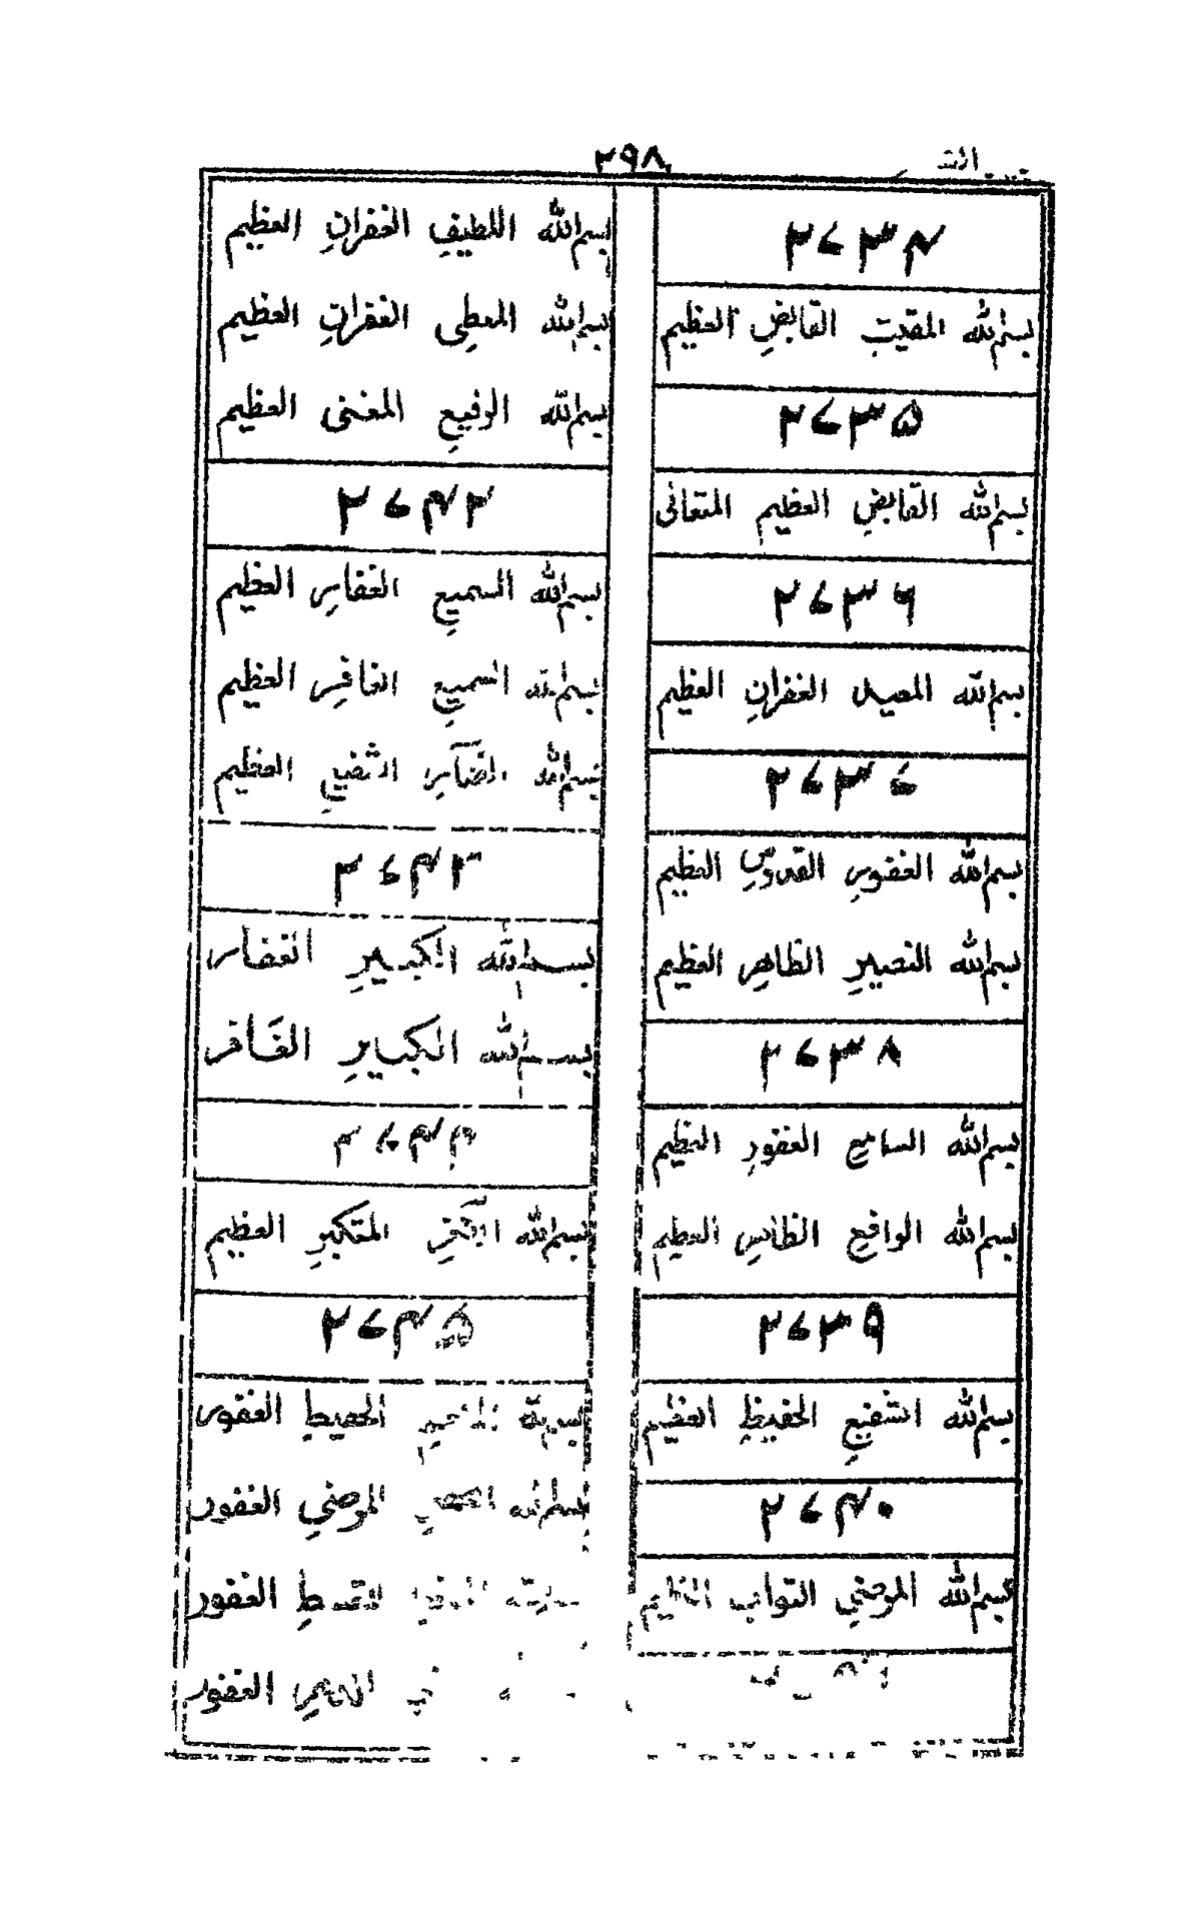 ۲۹۸
۲۷۳۴
بسم الله المقیت القابضِ العظیم
۲۷۳۵
بسم الله القابضِ العظیمِ المتعالی
۲۷۳۶
بسم الله المعید الغفرانِ العظیم
۲۷۳۷
بسم الله الغفورِ القدوسِ العظیم
بسم الله النصیرِ الظاهرِ العظیم
۲۷۳۸
بسم الله السامع الغفورِ العظیم
بسم الله الوافعِ العظیم
۲۷۳۹
بسم الله الشفیعِ الحفیظِ العظیم
۲۷۴۰
بسم الله الموصی التواب العظیم
بسم الله اللطیفِ الغفرانِ العظیم
بسم الله المعطی الغفرانِ العظیم
بسم الله الرفیعِ المغنی العظیم
۲۷۴۲
بسم الله السمیعِ الغفارِ العظیم
بسم الله السمیعِ الغافرِ العظیم
بسم الله الضآرِ الشفیعِ العظیم
۲۷۴۳
بسم الله الکبیرِ الغفار
بسم الله الکبیرِ الغافر
۲۷۴۴
بسم الله المتکبرِ العظیم
۲۷۴۵
بسم الله المحیطِ الغفور
بسم الله الموصی الغفور
المقسطِ الغفور
الغفور